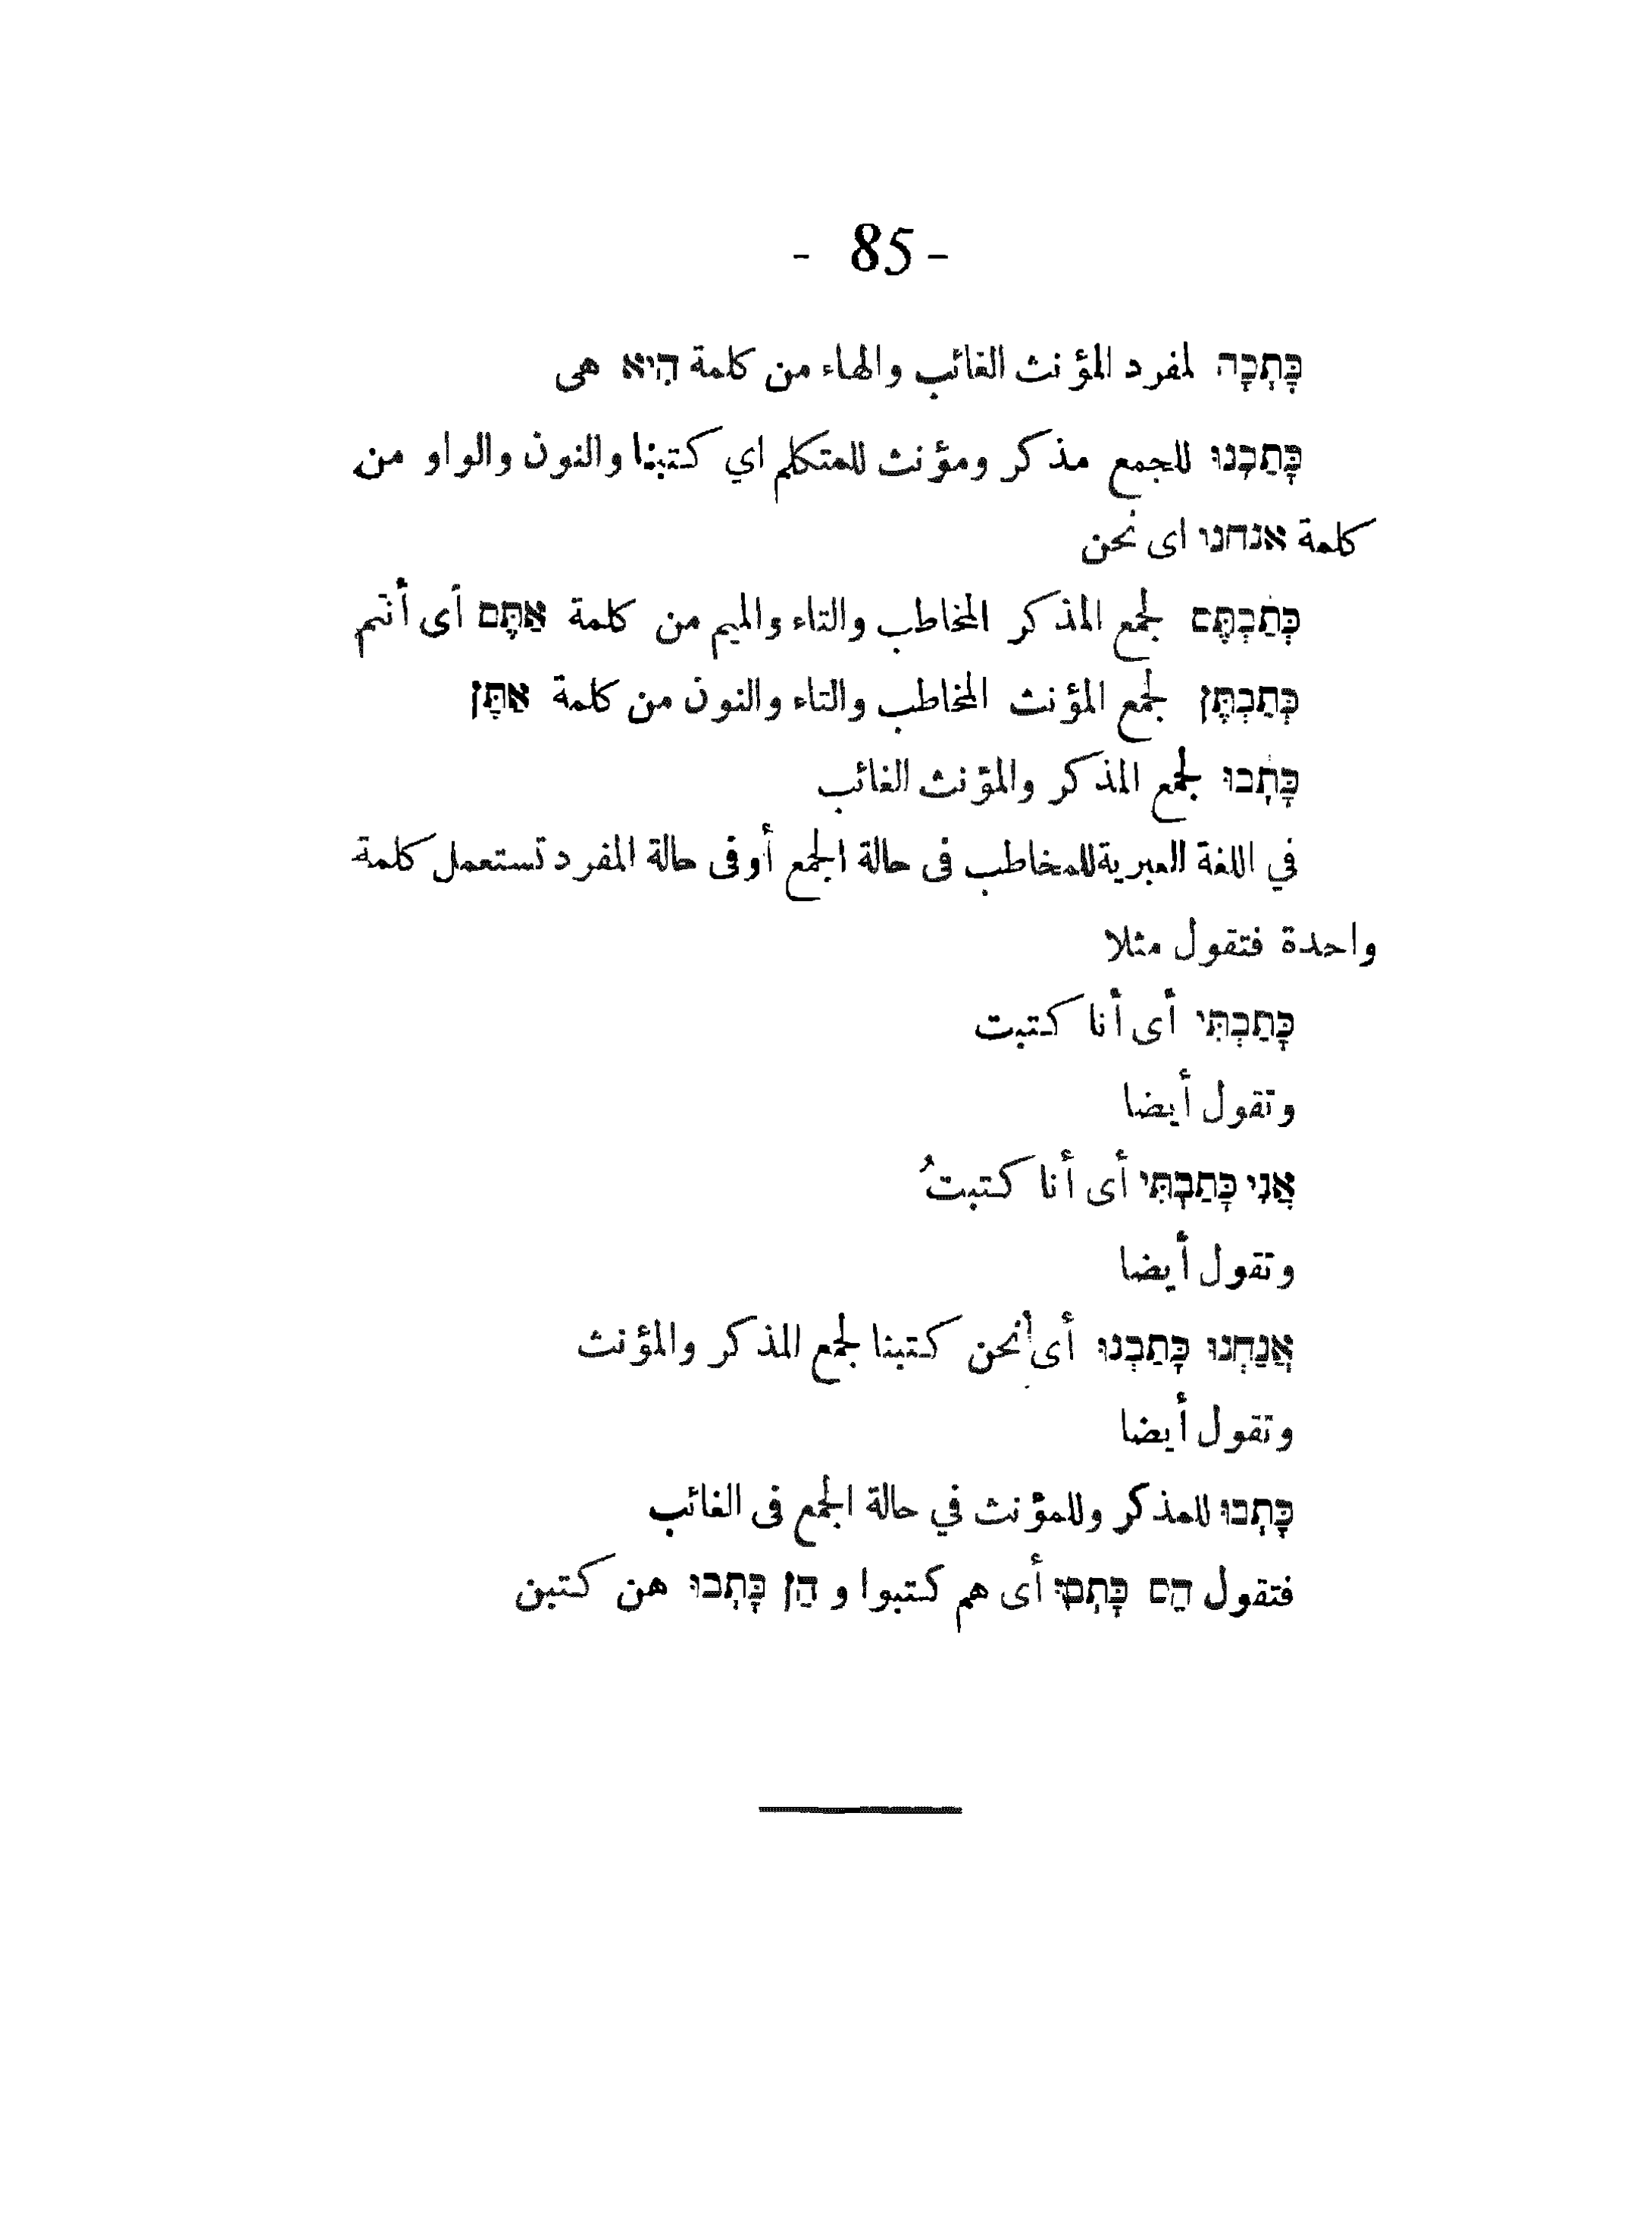 - 85 -
כָּתְבָה لمفرد المؤنث الغائب والهاء من كلمة הִיא هى
כָּתַבְנוּ للجمع مذكر ومؤنث للمتكلم اي كتبنا والنون والواو من
كلمة אנחנו اى نحن
כְּתַבְתֶּם لجمع المذكر المخاطب والتاء والميم من كلمة אַתֶּם أى أنتم
כְּתַבְתֶּן لجمع المؤنث المخاطب والتاء والنون من كلمة אַתֶּן
כָּתְבוּ لجمع المذكر والمؤنث الغائب
في اللغة العبرية للمخاطب فى حالة الجمع أوفى حالة المفرد تستعمل كلمة
واحدة فتقول مثلا
כָּתַבְתִּי أى أنا كتبت
وتقول أيضا
אֲנִי כָּתַבְתִּי أى أنا كتبتُ
وتقول أيضا
אֲנַחְנוּ כָּתַבְנוּ أى أنحن كتبنا لجمع المذكر والمؤنث
وتقول أيضا
כָּתְבוּ للمذكر وللمؤنث في حالة الجمع فى الغائب
فتقول הֵם כָּתְבוּ أى هم كتبوا و הֵן כָּתְבוּ هن كتبن